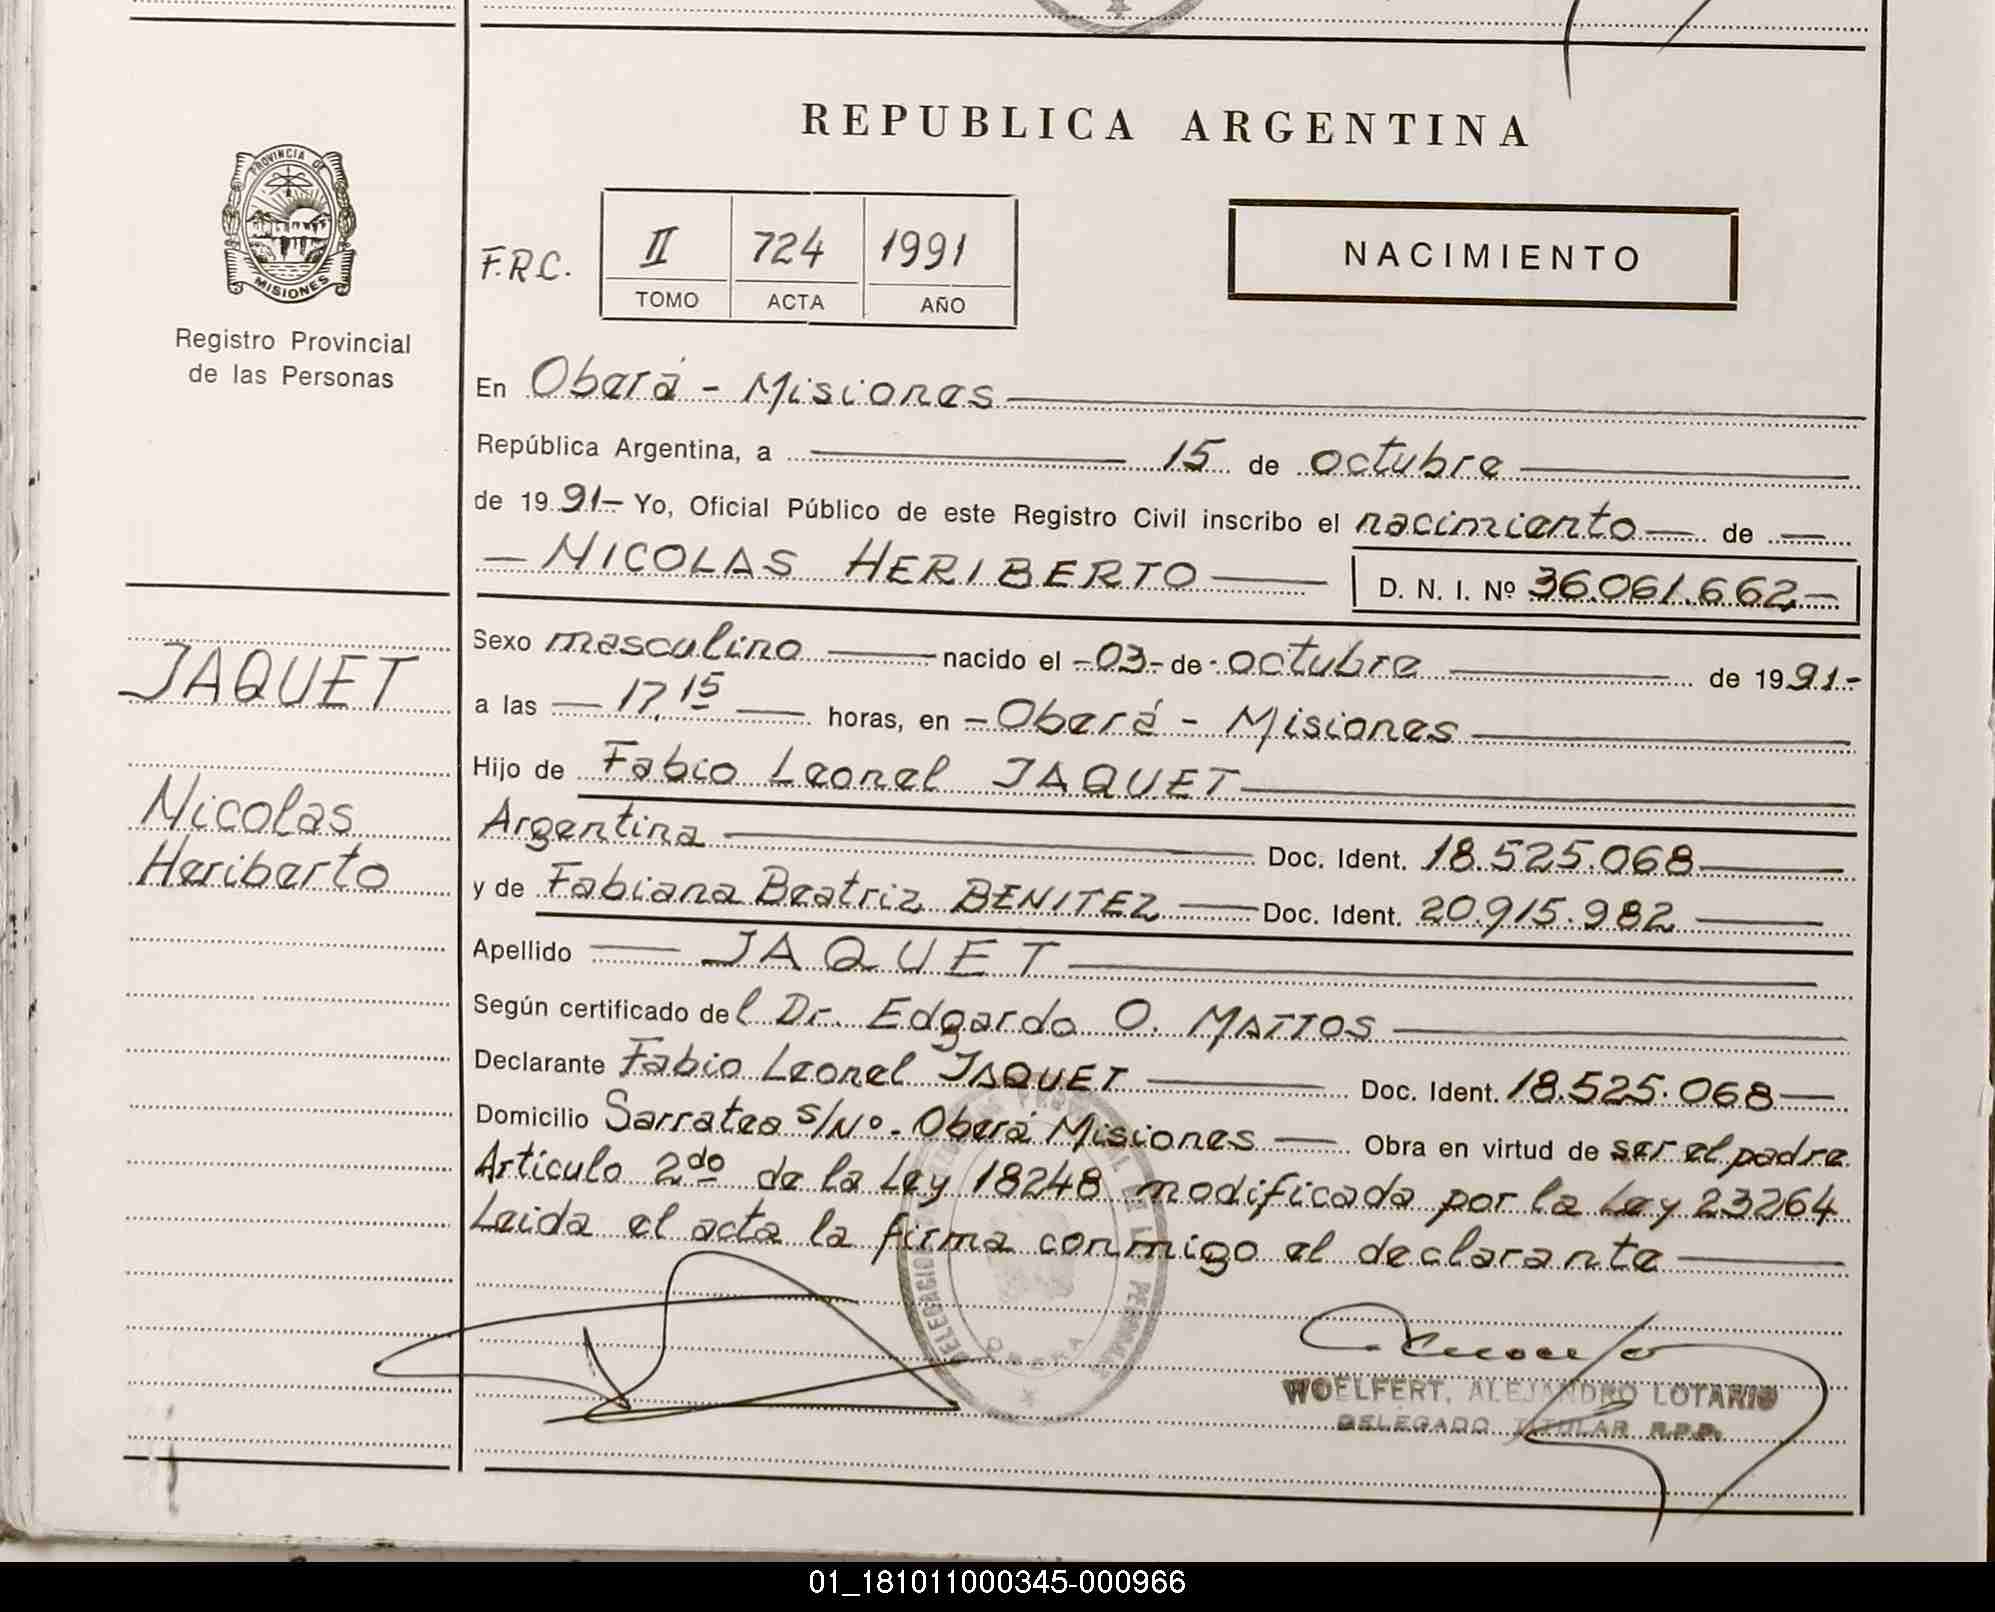 REPUBLICA ARGENTINA
PROVINCIA DE
MISIONES
Registro Provincial
de las Personas
F.R.C. II 724 1991
TOMO ACTA AÑO
NACIMIENTO
En Oberá - Misiones
República Argentina, a 15 de octubre
de 19 91- Yo, Oficial Público de este Registro Civil inscribo el nacimiento de
NICOLAS HERIBERTO D. N. I. Nº 36.061.662
JAQUET
Nicolas
Heriberto
Sexo masculino nacido el - 03 - de - octubre de 19 91.-
a las 17,15 horas, en - Oberá - Misiones
Hijo de Fabio Leonel JAQUET
Argentina Doc. Ident. 18.525.068
y de Fabiana Beatriz BENITEZ Doc. Ident. 20.915.982
Apellido JAQUET
Según certificado del Dr. Edgardo O. MATTOS
Declarante Fabio Leonel JAQUET Doc. Ident. 18.525.068
Domicilio Sarratea s/Nº. Oberá Misiones Obra en virtud de ser el padre
Articulo 2do de la Ley 18248 modificada por la Ley 23264
Leida el acta la firma conmigo el declarante
DELEGACION
DE LAS PERSONAS
OBERA
WOELFERT, ALEJANDRO LOTARIO
DELEGADO TITULAR R.P.P.
01_181011000345-000966